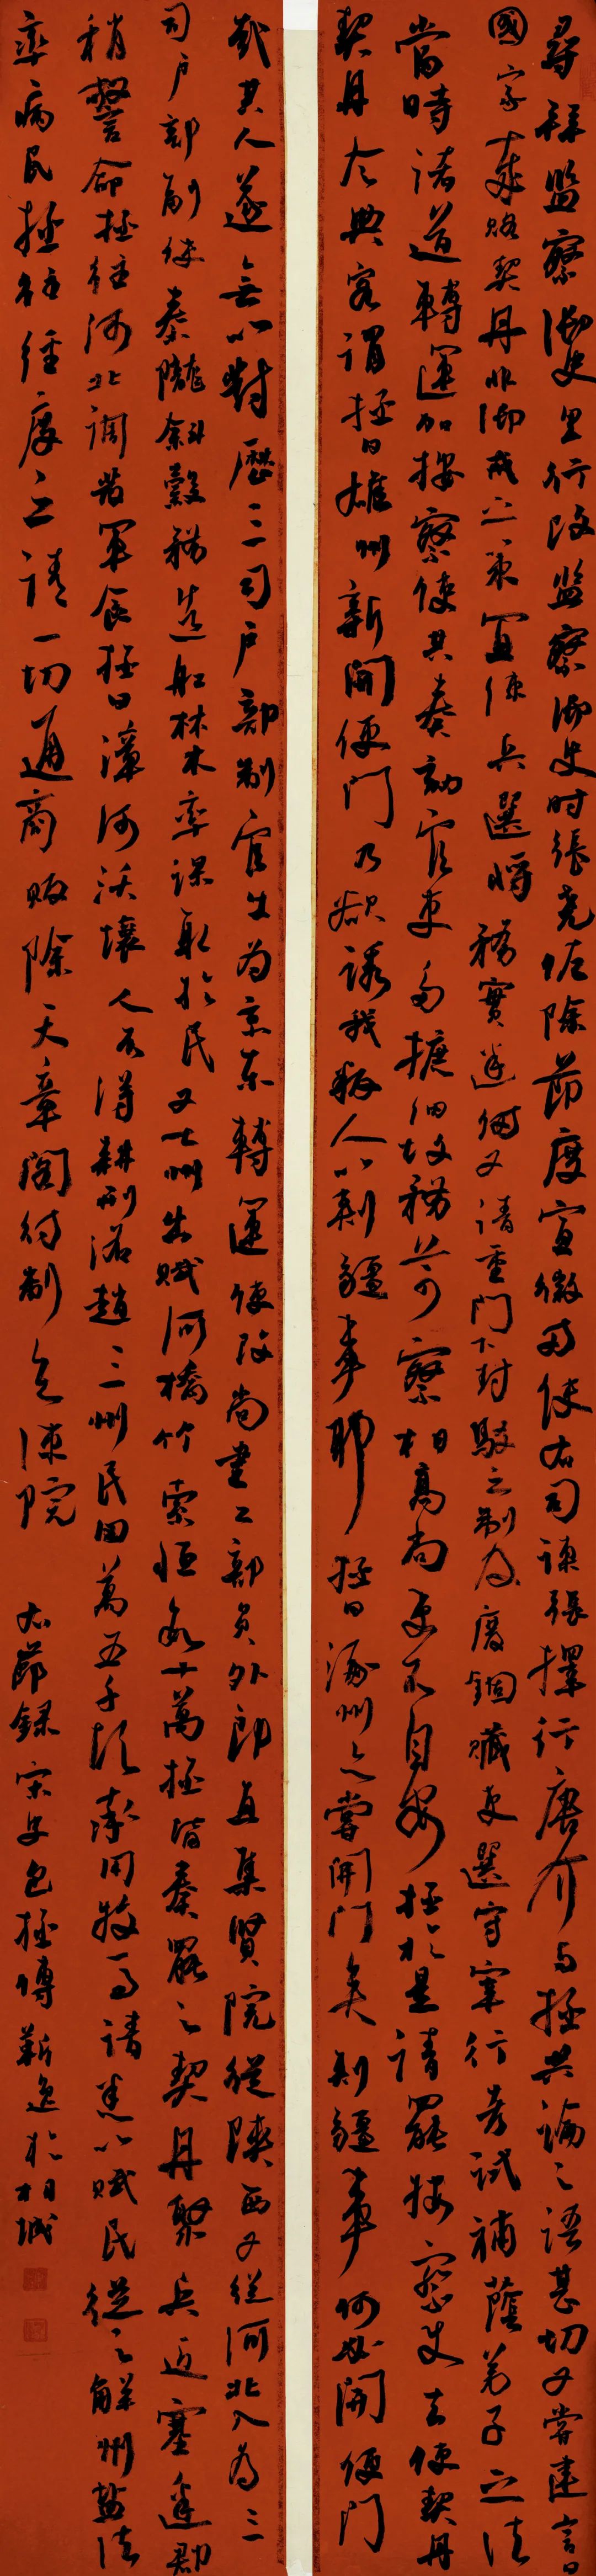 尋拜監察御史里行改監察御史時張堯佐除節度宣徽两使右司諫張擇行唐介与拯共論之語甚切又嘗建言曰
國家歲賂契丹非御戎之策宜練兵選將務實邊備又請重門下封駮之制及廢錮贓吏選守宰行考試補蔭弟子之法
當時诸道轉運加按察使其奏劾官吏多摭细故務苛察相高尚吏不自安拯於是請罷按察使去使契丹
契丹令典客謂拯曰雄州新開便門乃欲誘我叛人以刺疆事耶拯曰涿州亦嘗開門矣刺疆事何必開便門
哉其人遂無以對歷三司户部判官出为京东轉運使改尚書工部員外郎直集賢院徙陝西又徙河北入为三
司户部副使秦隴斜穀務造船材木率课取於民又七州出赋河橋竹索恒數十萬拯皆奏罷之契丹聚兵近塞邊郡
稍警命拯往河北調發軍食拯曰漳河沃壤人不得耕邢洺趙三州民田萬五千頃率用牧马請悉以赋民從之解州鹽法
率病民拯往經度之請一切通商販除天章閣待制知諫院 右節録宋史包拯傳 靳逸於相城